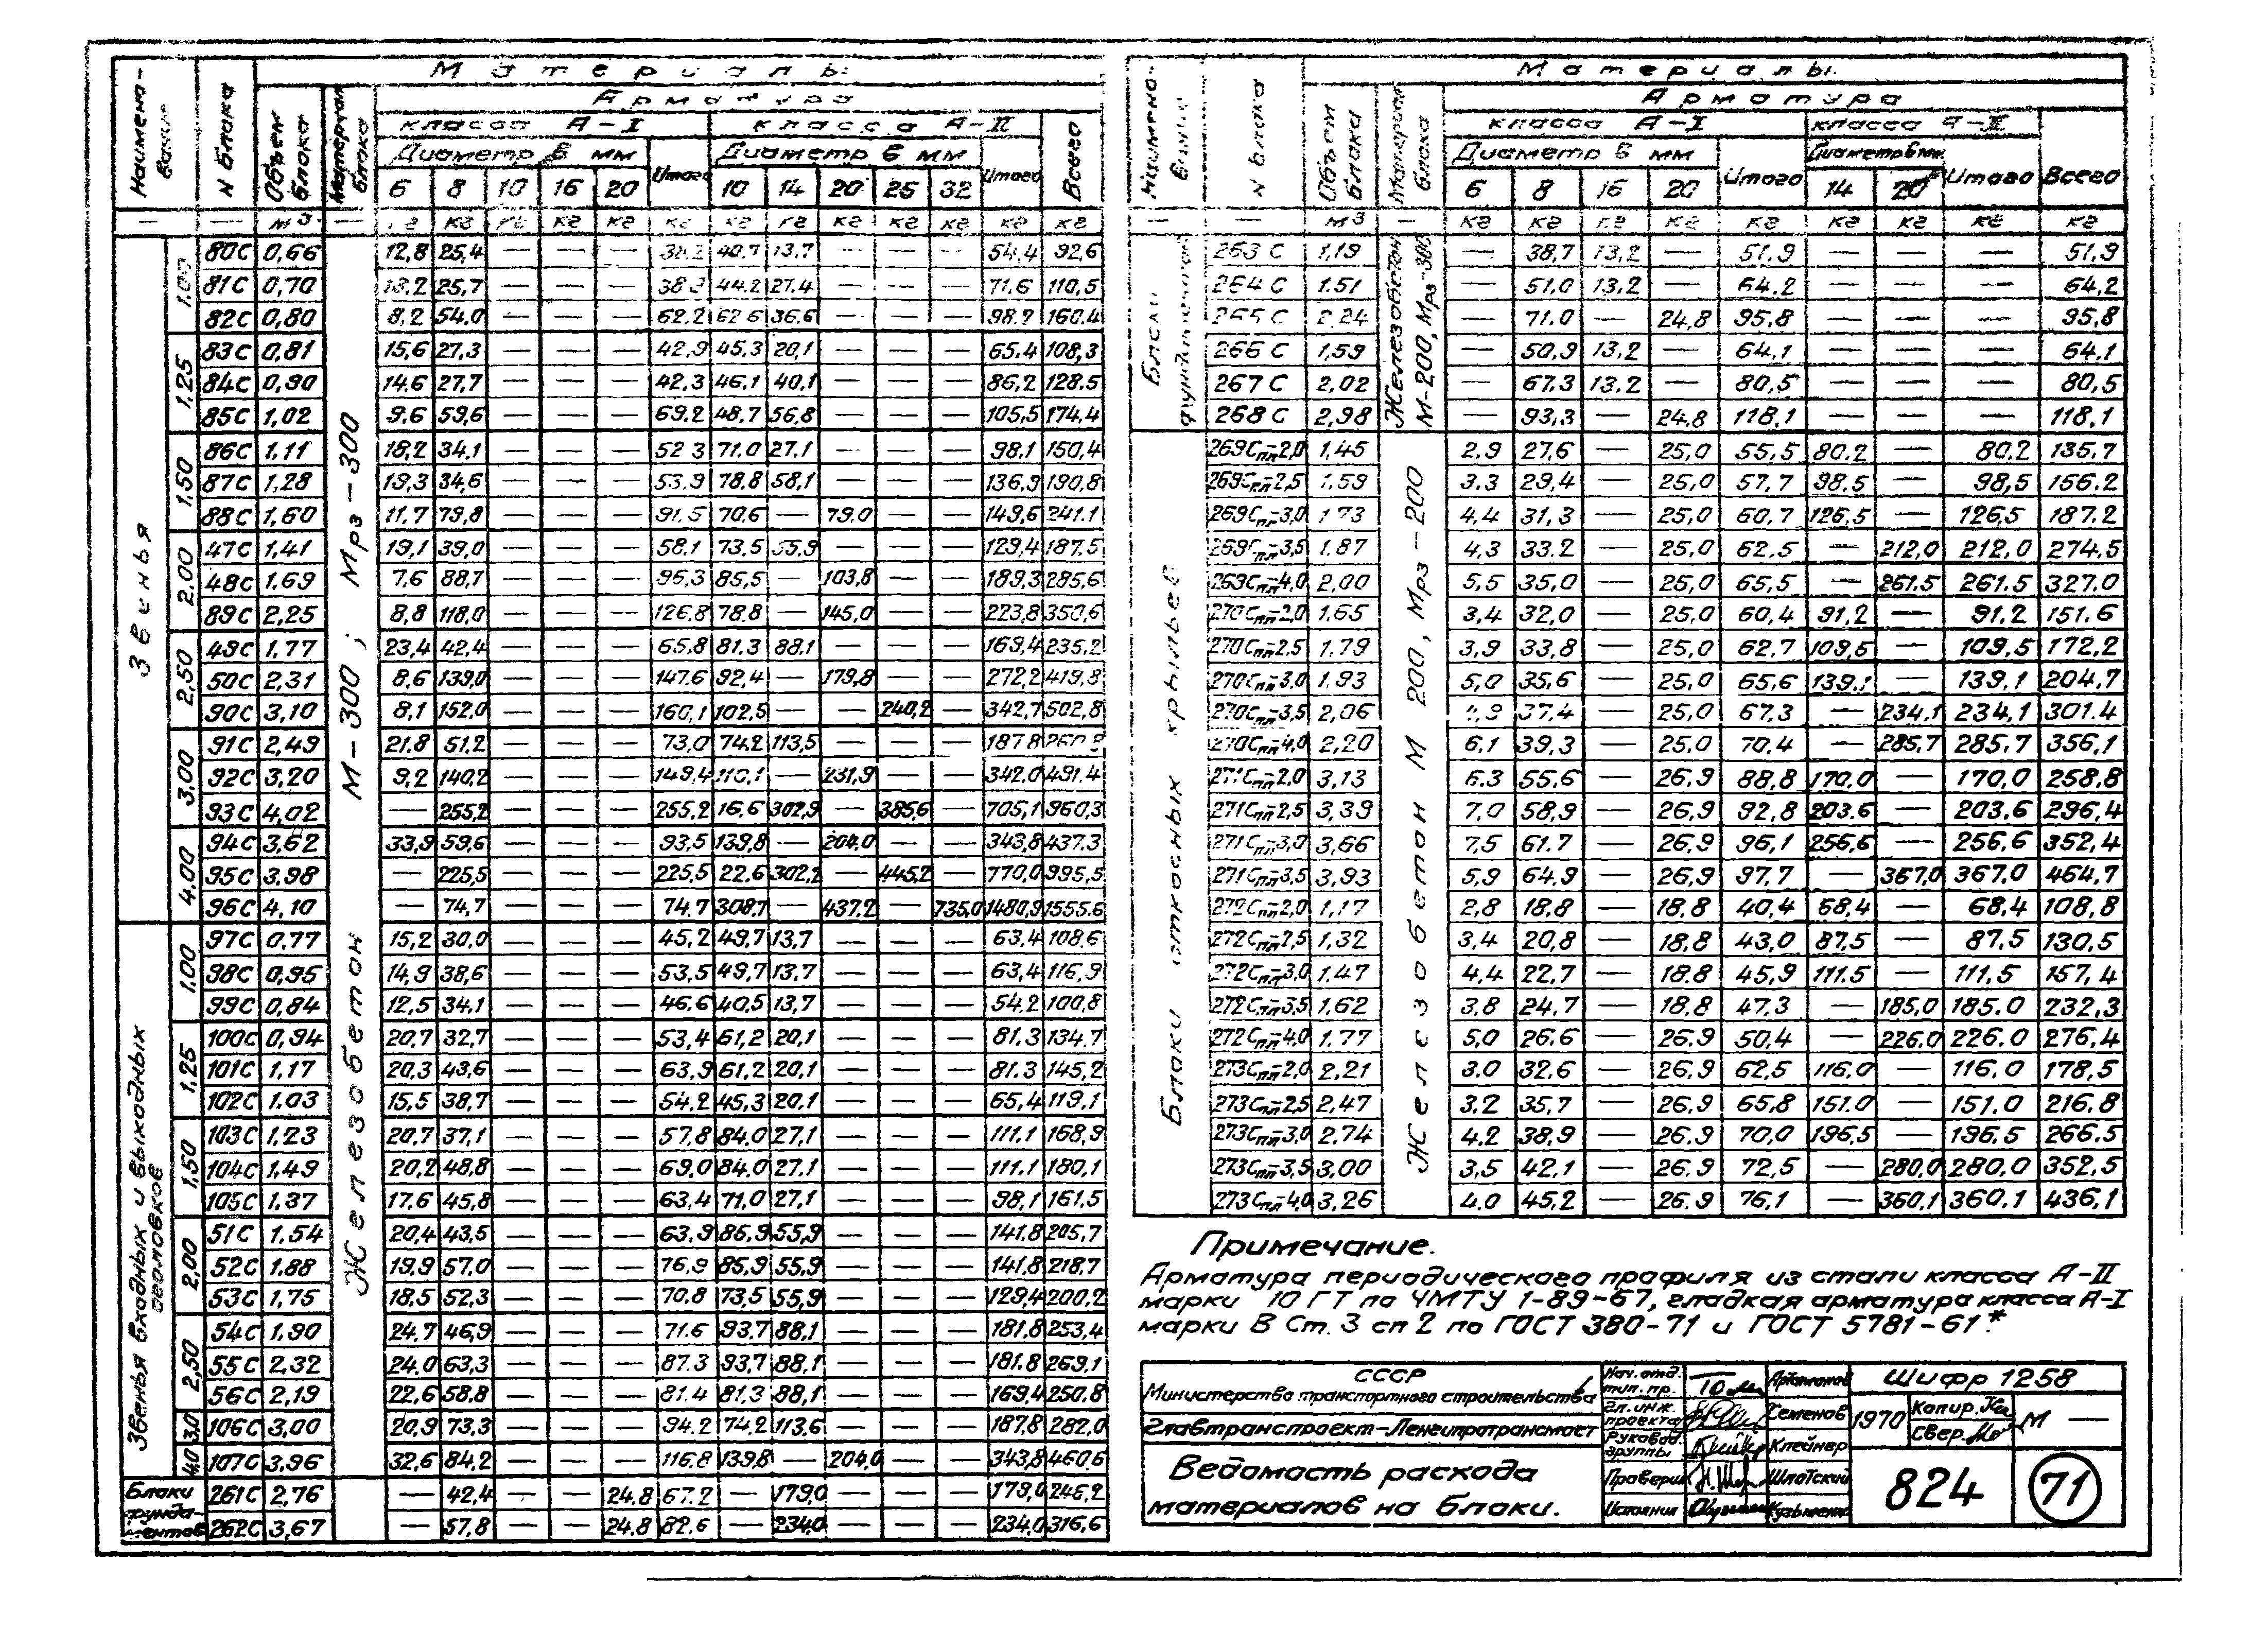 Наименование
N блока
Материалы
Объем блока
Материал блока
Арматура
класса А-I
класса А-II
Всего
Диаметр в мм
Итого
Диаметр в мм
Итого
6 8 10 16 20 10 14 20 25 32
— — м3 — кг кг кг кг кг кг кг кг кг кг кг кг кг
Звенья
Железобетон М-300; Мрз-300
1.00
80С 0,66 12,8 25,4 — — — 38,2 40,7 13,7 — — — 54,4 92,6
81С 0,70 13,2 25,7 — — — 38,9 44,2 27,4 — — — 71,6 110,5
82С 0,80 8,2 54,0 — — — 62,2 62,6 36,6 — — — 98,2 160,4
1.25
83С 0,81 15,6 27,3 — — — 42,9 45,3 20,1 — — — 65,4 108,3
84С 0,90 14,6 27,7 — — — 42,3 46,1 40,1 — — — 86,2 128,5
85С 1,02 9,6 59,6 — — — 69,2 48,7 56,8 — — — 105,5 174,4
1.50
86С 1,11 18,2 34,1 — — — 52,3 71,0 27,1 — — — 98,1 150,4
87С 1,28 19,3 34,6 — — — 53,9 78,8 58,1 — — — 136,9 190,8
88С 1,60 11,7 79,8 — — — 91,5 70,6 — 79,0 — — 149,6 241,1
2.00
47С 1,41 19,1 39,0 — — — 58,1 73,5 55,9 — — — 129,4 187,5
48С 1,69 7,6 88,7 — — — 96,3 85,5 — 103,8 — — 189,3 285,6
89С 2,25 8,8 118,0 — — — 126,8 78,8 — 145,0 — — 223,8 350,6
2,50
49С 1,77 23,4 42,4 — — — 65,8 81,3 88,1 — — — 169,4 235,2
50С 2,31 8,6 139,0 — — — 147,6 92,4 — 179,8 — — 272,2 419,8
90С 3,10 8,1 152,0 — — — 160,1 102,5 — — 240,2 — 342,7 502,8
3,00
91С 2,49 21,8 51,2 — — — 73,0 74,2 113,5 — — — 187,8 260,8
92С 3,20 9,2 140,2 — — — 149,4 110,1 — 231,9 — — 342,0 491,4
93С 4,02 — 255,2 — — — 255,2 16,6 302,9 — 385,6 — 705,1 960,3
4.00
94С 3,62 33,9 59,6 — — — 93,5 139,8 — 204,0 — — 343,8 437,3
95С 3,98 — 225,5 — — — 225,5 22,6 302,2 — 445,2 — 770,0 995,5
96С 4,10 — 74,7 — — — 74,7 308,7 — 437,2 — 735,0 1480,9 1555,6
Звенья входных и выходных оголовков
1.00
97С 0,77 15,2 30,0 — — — 45,2 49,7 13,7 — — — 63,4 108,6
98С 0,95 14,9 38,6 — — — 53,5 49,7 13,7 — — — 63,4 116,9
99С 0,84 12,5 34,1 — — — 46,6 40,5 13,7 — — — 54,2 100,8
1.25
100С 0,94 20,7 32,7 — — — 53,4 61,2 20,1 — — — 81,3 134,7
101С 1,17 20,3 43,6 — — — 63,9 61,2 20,1 — — — 81,3 145,2
102С 1,03 15,5 38,7 — — — 54,2 45,3 20,1 — — — 65,4 119,1
1.50
103С 1,23 20,7 37,1 — — — 57,8 84,0 27,1 — — — 111,1 168,9
104С 1,49 20,2 48,8 — — — 69,0 84,0 27,1 — — — 111,1 180,1
105С 1,37 17,6 45,8 — — — 63,4 71,0 27,1 — — — 98,1 161,5
2.00
51С 1,54 20,4 43,5 — — — 63,9 86,9 55,9 — — — 141,8 205,7
52С 1,88 19,9 57,0 — — — 76,9 85,9 55,9 — — — 141,8 218,7
53С 1,75 18,5 52,3 — — — 70,8 73,5 55,9 — — — 129,4 200,2
2,50
54С 1,90 24,7 46,9 — — — 71,6 93,7 88,1 — — — 181,8 253,4
55С 2,32 24,0 63,3 — — — 87,3 93,7 88,1 — — — 181,8 269,1
56С 2,19 22,6 58,8 — — — 81,4 81,3 88,1 — — — 169,4 250,8
3,0
106С 3,00 20,9 73,3 — — — 94,2 74,2 113,6 — — — 187,8 282,0
4,0
107С 3,96 32,6 84,2 — — — 116,8 139,8 — 204,0 — — 343,8 460,6
Блоки фундаментов
261С 2,76 — 42,4 — — 24,8 67,2 — 179,0 — — — 179,0 246,2
262С 3,67 — 57,8 — — 24,8 82,6 — 234,0 — — — 234,0 316,6
Наименование
N блока
Материалы
Объем блока
Материал блока
Арматура
класса А-I
класса А-II
Диаметр в мм
Итого
Диаметр в мм
Итого
Всего
6 8 16 20 14 20
— — м3 — кг кг кг кг кг кг кг кг кг
Блоки фундаментов
Железобетон М-200, Мрз-300
263С 1,19 — 38,7 13,2 — 51,9 — — — 51,9
264С 1,51 — 51,0 13,2 — 64,2 — — — 64,2
265С 2,24 — 71,0 — 24,8 95,8 — — — 95,8
266С 1,59 — 50,9 13,2 — 64,1 — — — 64,1
267С 2,02 — 67,3 13,2 — 80,5 — — — 80,5
268С 2,98 — 93,3 — 24,8 118,1 — — — 118,1
Блоки откосных крыльев
Железобетон М 200, Мрз-200
269Спл-2,0 1,45 2,9 27,6 — 25,0 55,5 80,2 — 80,2 135,7
269Спл-2,5 1,59 3,3 29,4 — 25,0 57,7 98,5 — 98,5 156,2
269Спл-3,0 1,73 4,4 31,3 — 25,0 60,7 126,5 — 126,5 187,2
269Спл-3,5 1,87 4,3 33,2 — 25,0 62,5 — 212,0 212,0 274,5
269Спл-4,0 2,00 5,5 35,0 — 25,0 65,5 — 261,5 261,5 327,0
270Спл-2,0 1,65 3,4 32,0 — 25,0 60,4 91,2 — 91,2 151,6
270Спл-2,5 1,79 3,9 33,8 — 25,0 62,7 109,5 — 109,5 172,2
270Спл-3,0 1,93 5,0 35,6 — 25,0 65,6 139,1 — 139,1 204,7
270Спл-3,5 2,06 4,9 37,4 — 25,0 67,3 — 234,1 234,1 301,4
270Спл-4,0 2,20 6,1 39,3 — 25,0 70,4 — 285,7 285,7 356,1
271Спл-2,0 3,13 6,3 55,6 — 26,9 88,8 170,0 — 170,0 258,8
271Спл-2,5 3,39 7,0 58,9 — 26,9 92,8 203,6 — 203,6 296,4
271Спл-3,0 3,66 7,5 61,7 — 26,9 96,1 256,6 — 256,6 352,4
271Спл-3,5 3,93 5,9 64,9 — 26,9 97,7 — 367,0 367,0 464,7
272Спл-2,0 1,17 2,8 18,8 — 18,8 40,4 68,4 — 68,4 108,8
272Спл-2,5 1,32 3,4 20,8 — 18,8 43,0 87,5 — 87,5 130,5
272Спл-3,0 1,47 4,4 22,7 — 18,8 45,9 111,5 — 111,5 157,4
272Спл-3,5 1,62 3,8 24,7 — 18,8 47,3 — 185,0 185,0 232,3
272Спл-4,0 1,77 5,0 26,6 — 26,9 50,4 — 226,0 226,0 276,4
273Спл-2,0 2,21 3,0 32,6 — 26,9 62,5 116,0 — 116,0 178,5
273Спл-2,5 2,47 3,2 35,7 — 26,9 65,8 151,0 — 151,0 216,8
273Спл-3,0 2,74 4,2 38,9 — 26,9 70,0 196,5 — 196,5 266,5
273Спл-3,5 3,00 3,5 42,1 — 26,9 72,5 — 280,0 280,0 352,5
273Спл-4,0 3,26 4,0 45,2 — 26,9 76,1 — 360,1 360,1 436,1
Примечание.
Арматура периодического профиля из стали класса А-II
марки 10 ГТ по ЧМТУ 1-89-67, гладкая арматура класса А-I
марки В Ст. 3 сп 2 по ГОСТ 380-71 и ГОСТ 5781-61*
СССР
Министерство транспортного строительства
Главтранспроект-Ленгипротрансмост
Ведомость расхода
материалов на блоки.
Нач. отд. тип. пр. Артамонов
Гл. инж. проекта Семенов
Руковод. группы Клейнер
Проверил
Исполнил
Шифр 1258
1970
Копир.
Свер.
М —
824
71